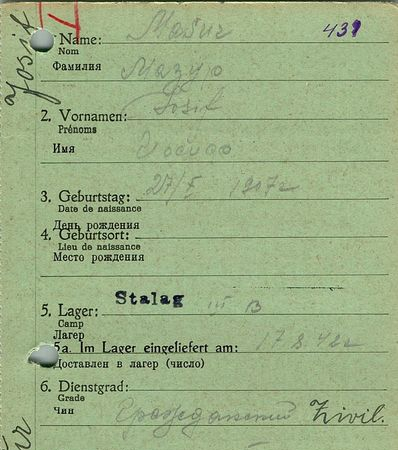 Josif
1. Name: Mašić
Nom
Фамилия
431
2. Vornamen: Josif
Prénoms
Имя
3. Geburtstag: 27/I 1907 г
Date de naissance
День рождения
4. Geburtsort:
Lieu de naissance
Место рождения
5. Lager: Stalag III B
Camp
Лагер
5a. Im Lager eingeliefert am: 17.8.42 г
Доставлен в лагер (число)
6. Dienstgrad:
Grade
Чин Гражданский Zivil.